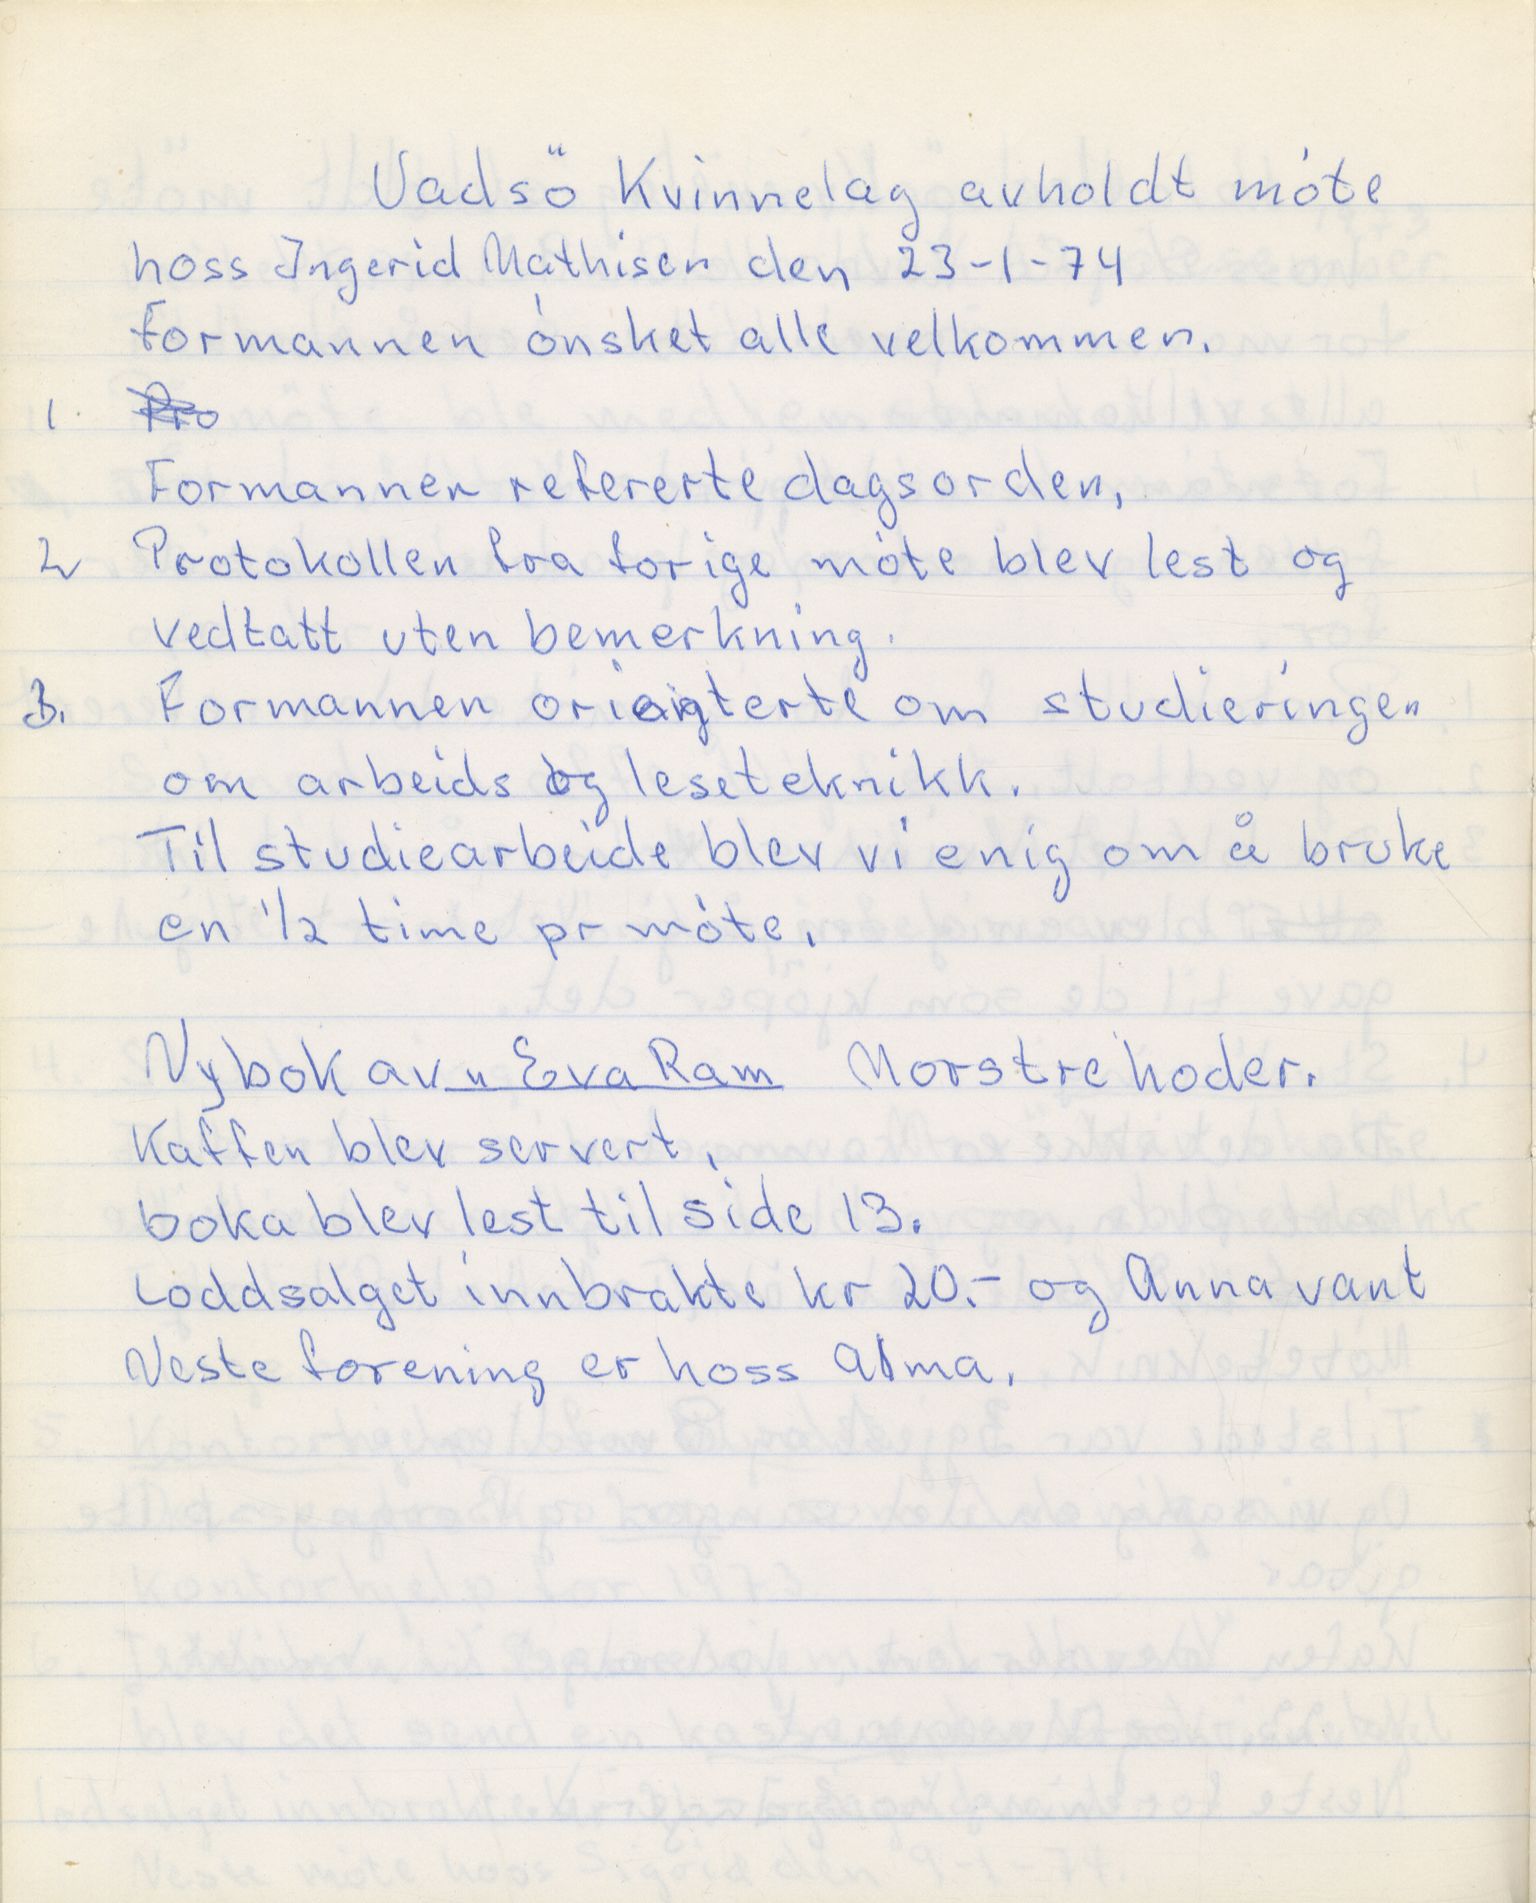 Vadsö Kvinnelag avholdt móte
hoss Ingerid Mathisen den 23-1-74
formannen ónsket alle velkommen.
1. Pro
Formannen refererte dagsorden,
2 Protokollen fra forige móte blev lest og
vedtatt uten bemerkning.
3. Formannen oriangterte om studieringen
om arbeids og leseteknikk.
Til studiearbeide blev vi enig om å bruke
en 1/2 time pr móte.
Ny bok av " Eva Ram Morstrehoder.
Kaffen blev servert,
boka blev lest til side 13.
Loddsalget innbrakte kr 20.- og Anna vant
Neste forening er hoss Alma.